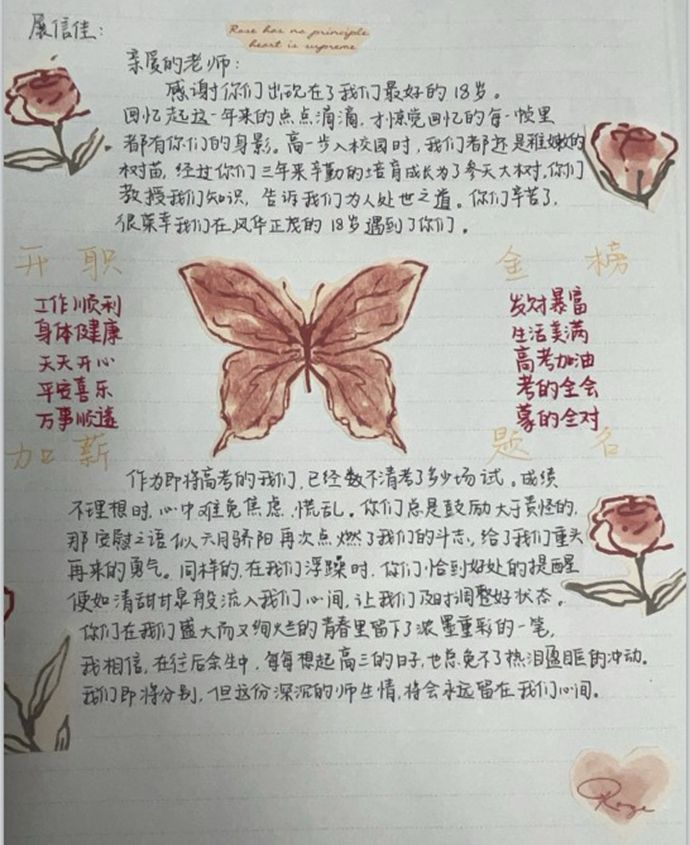 展信佳:
Rose has no principle
heart is supreme
亲爱的老师:
感谢你们出现在了我们最好的18岁。
回忆起这一年来的点点滴滴,才惊觉回忆的每一帧里
都有你们的身影。高一步入校园时,我们都还是稚嫩的
树苗,经过你们三年来辛勤的培育成长为了参天大树,你们
教授我们知识,告诉我们为人处世之道。你们辛苦了,
很荣幸我们在风华正茂的18岁遇到了你们。
升职
工作顺利
身体健康
天天开心
平安喜乐
万事顺遂
加薪
金榜
发财暴富
生活美满
高考加油
考的全会
蒙的全对
题名
作为即将高考的我们,已经数不清考了多少场试。成绩
不理想时,心中难免焦虑、慌乱。你们总是鼓励大于责怪的,
那安慰之语似六月骄阳再次点燃了我们的斗志,给了我们重头
再来的勇气。同样的,在我们浮躁时,你们恰到好处的提醒
便如清甜甘泉般流入我们心间,让我们及时调整好状态。
你们在我们盛大而又绚烂的青春里留下了浓墨重彩的一笔,
我相信,在往后余生中,每每想起高三的日子,也总免不了热泪盈眶的冲动。
我们即将分别,但这份深沉的师生情,将会永远留在我们心间。
Rose